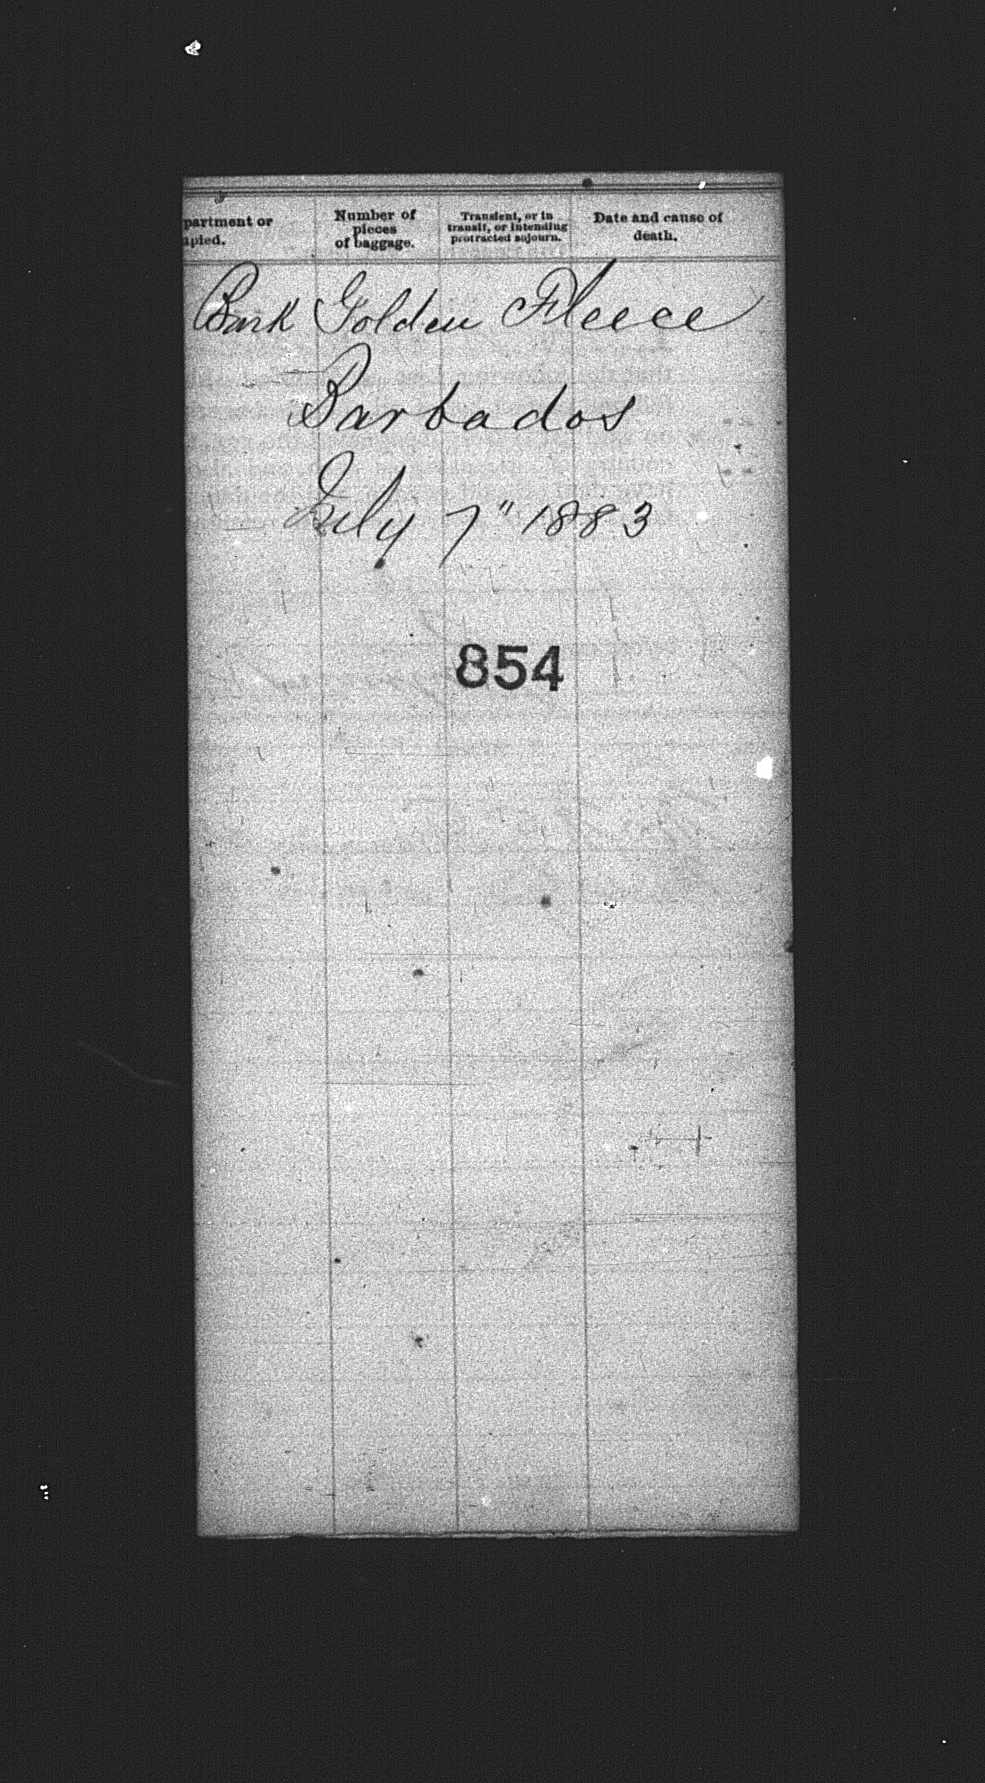 partment or
upied.
Number of
pieces
of baggage.
Transient, or in
transit, or intending
protracted sojourn.
Date and cause of
death.
Bark Golden Fleece
Barbados
July 7" 1883
854